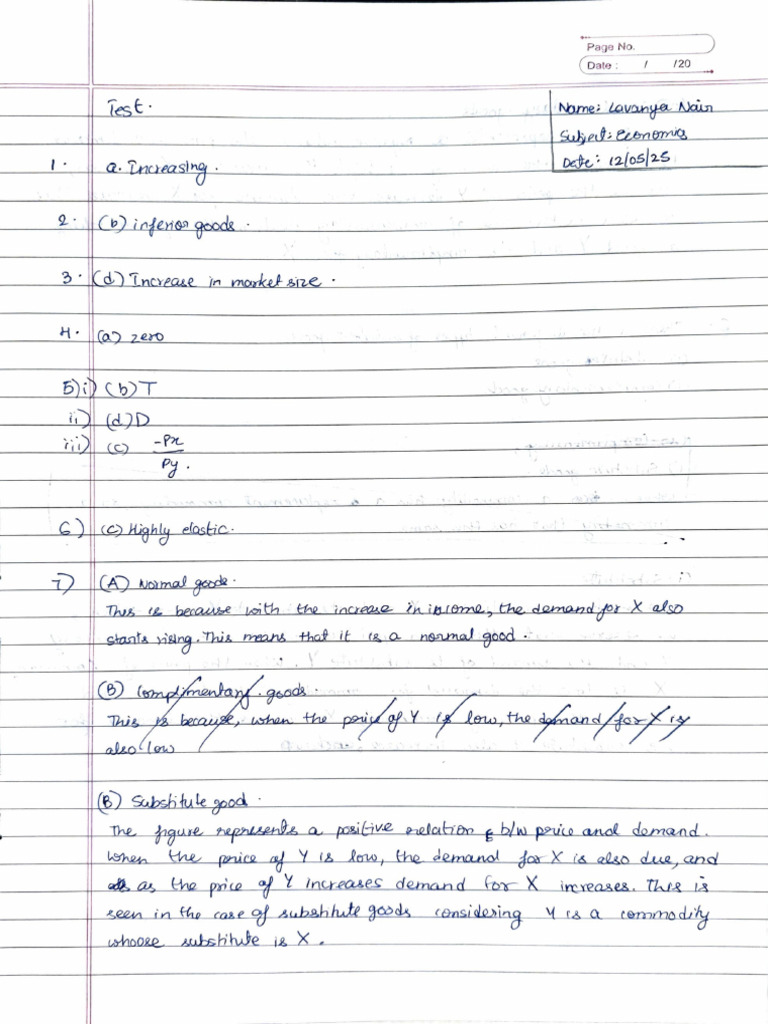 Page No.
Date : / /20
Test.
Name: Lavanya Nair
Subject: Economics
Date: 12/05/25
1. a. Increasing.
2. (b) inferior goods.
3. (d) Increase in market size.
4. (a) zero
5) i) (b) T
ii) (d) D
iii) (c) -Px
Py.
6) (c) Highly elastic.
7) (A) Normal goods.
This is because with the increase in income, the demand for X also
starts rising. This means that it is a normal good.
(B) Complimentary goods.
This is because, when the price of Y is low, the demand for X is
also low
(B) Substitute good.
The figure represents a positive relation b/w price and demand.
When the price of Y is low, the demand for X is also due, and
as the price of Y increases demand for X increases. This is
seen in the case of substitute goods considering Y is a commodity
whoose substitute is X.